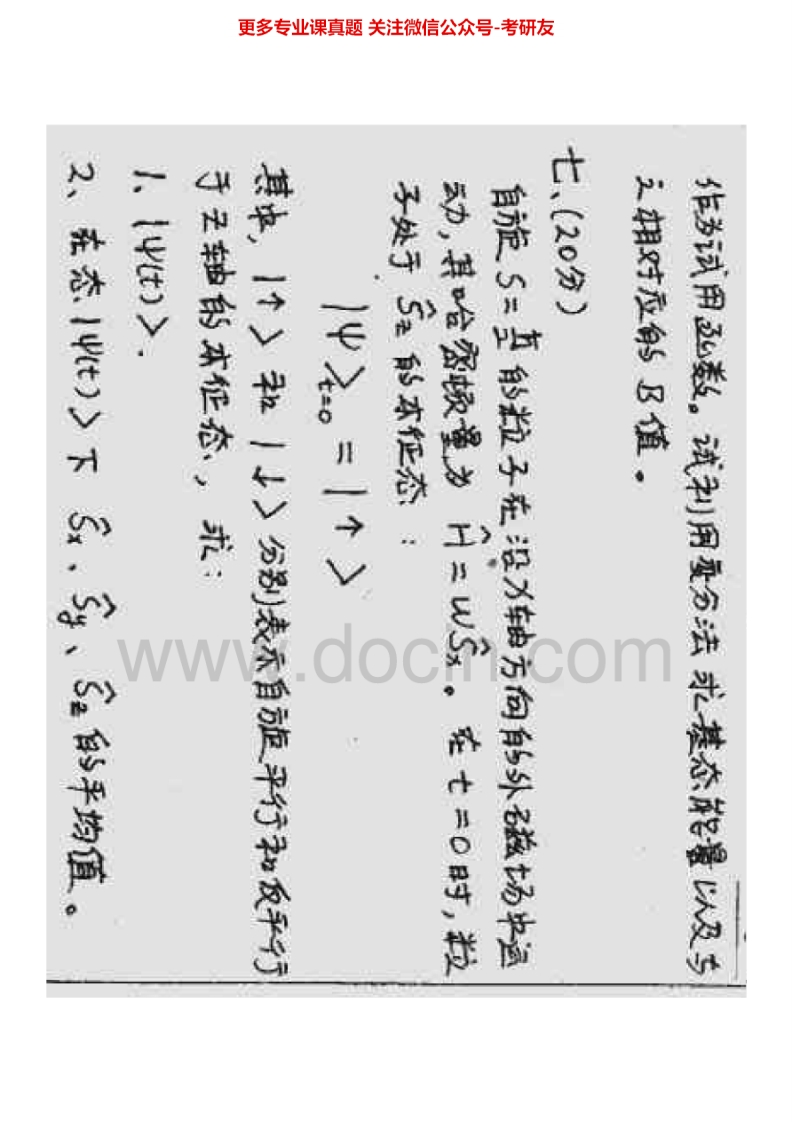 更多专业课真题 关注微信公众号-考研友
作为试用函数。试利用变分法求基态能量以及与
之相对应的B值。
七、(20分)
自旋S=1/2的粒子在沿X轴方向的外磁场中运
动,其哈密顿量为 Ĥ=ωŜx。在t=0时,粒
子处于Ŝz的本征态:
|ψ>t=0 = |↑>
其中,|↑>和|↓>分别表示自旋平行和反平行
于Z轴的本征态,求:
1、|ψ(t)>.
2、在态|ψ(t)>下 Ŝx、Ŝy、Ŝz的平均值。
www.docin.com